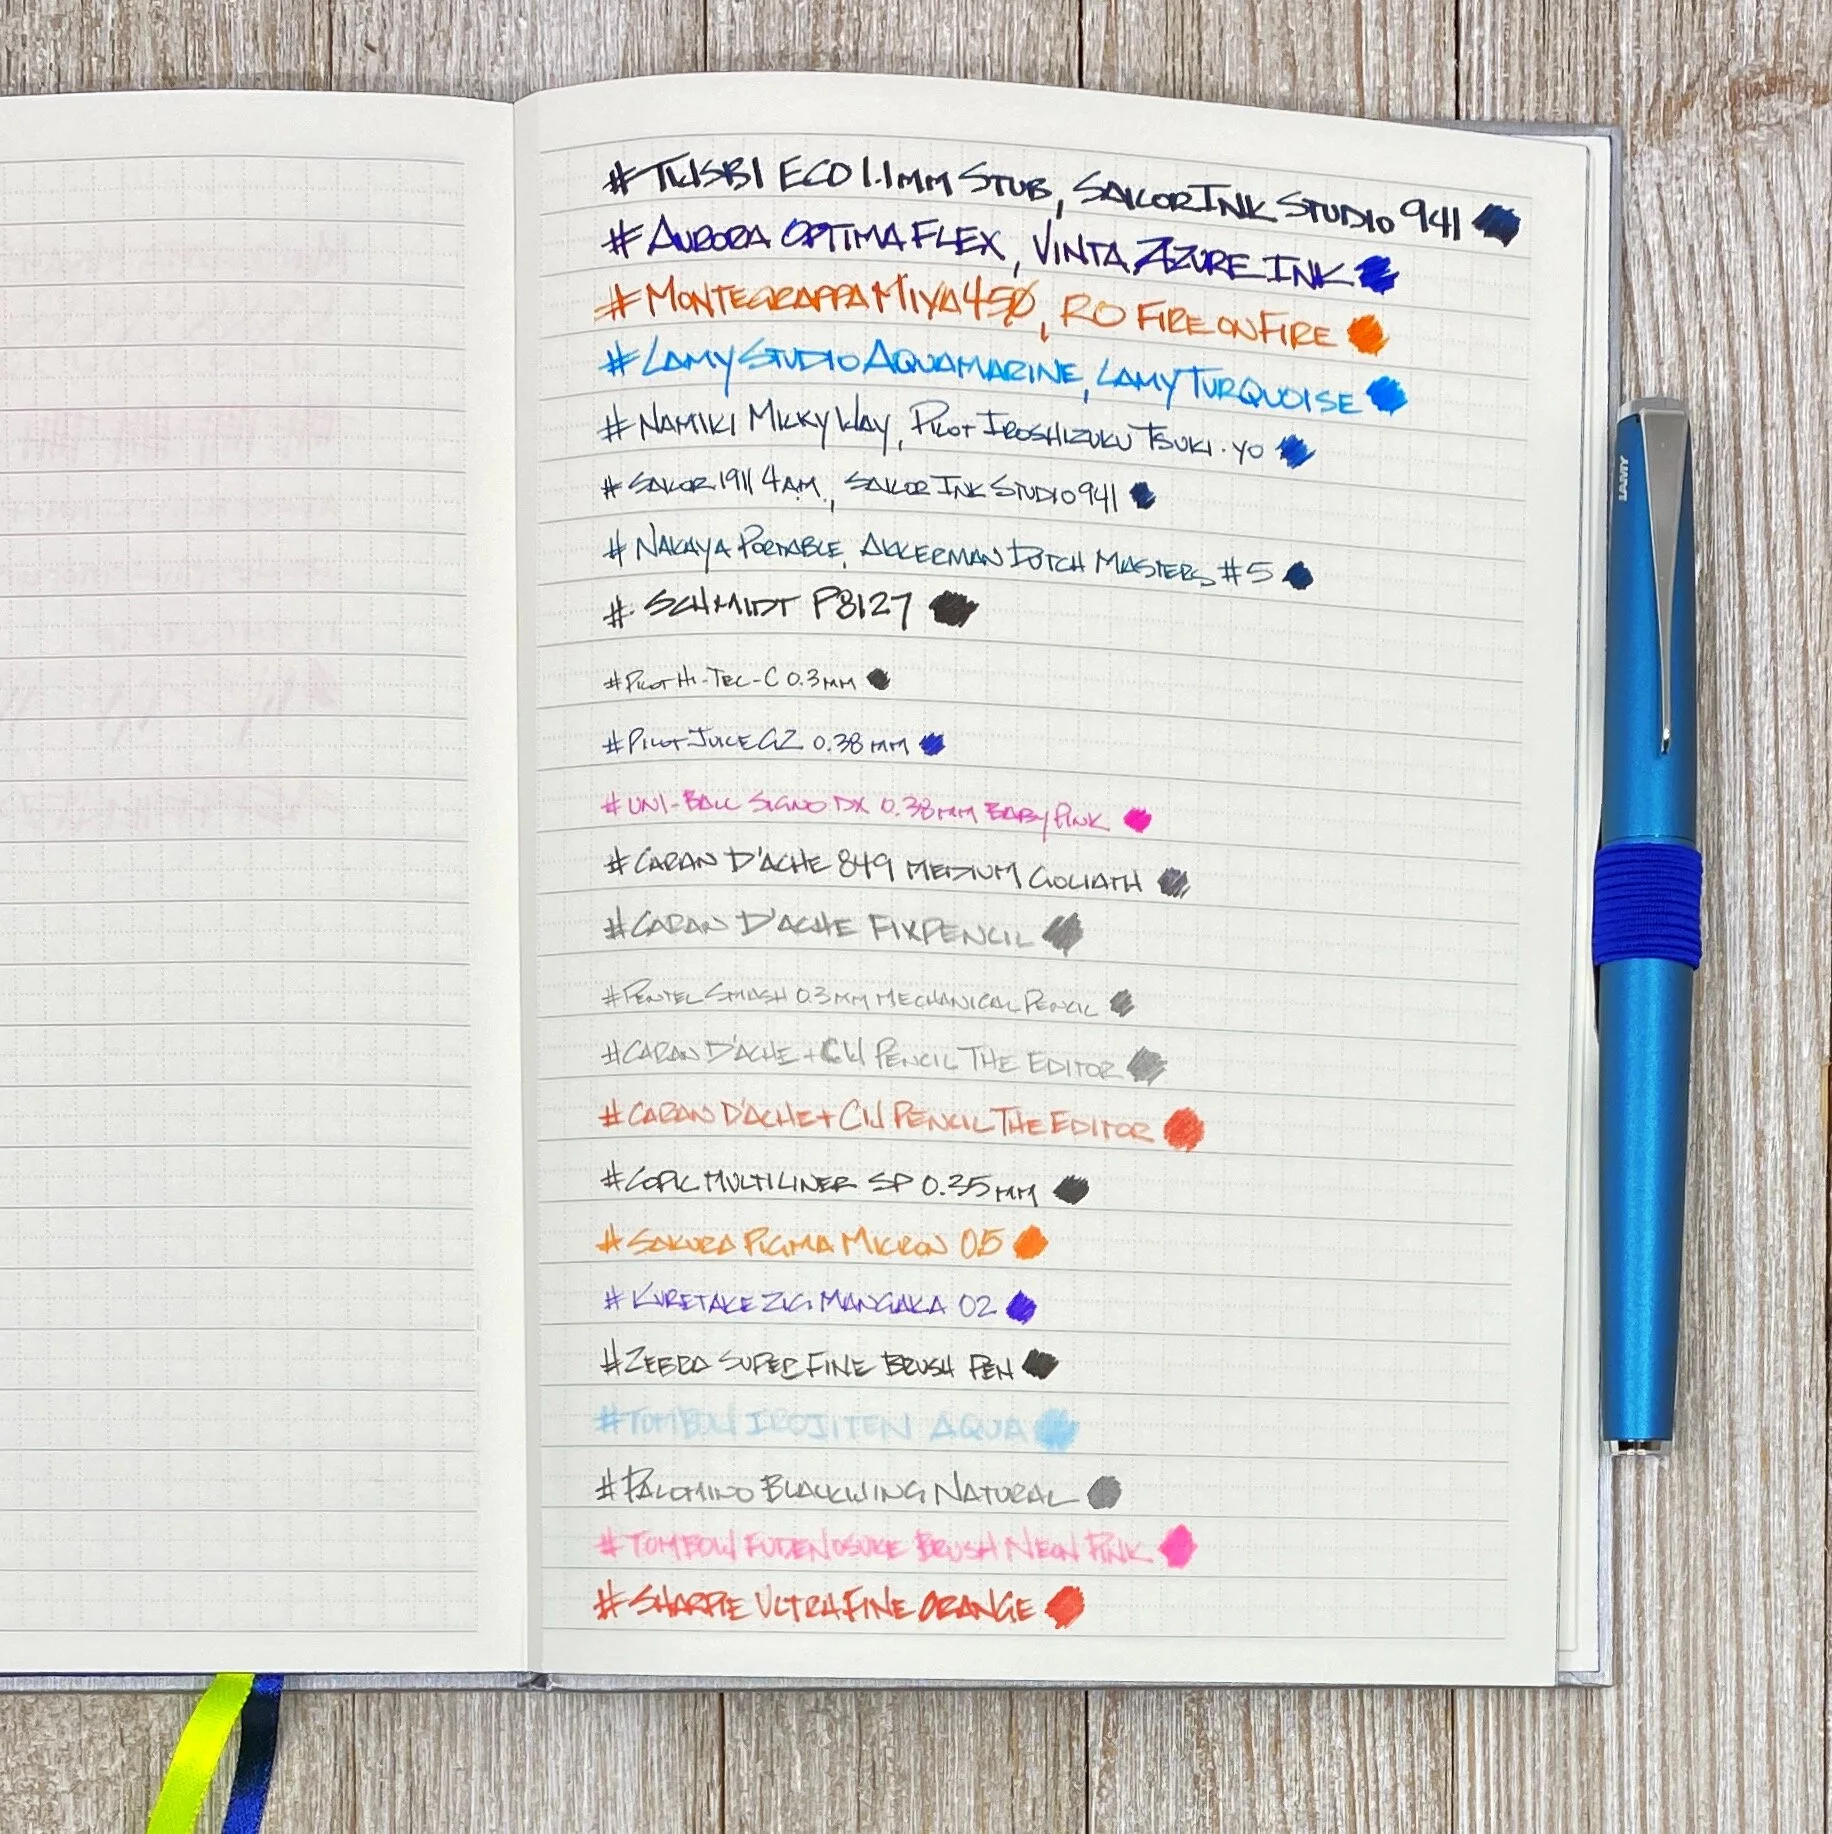 # TWSBI ECO 1.1MM STUB, SAILOR INK STUDIO 941
# AURORA OPTIMA FLEX, VINTA AZURE INK
# MONTEGRAPPA MIYA 450, RO FIRE ON FIRE
# LAMY STUDIO AQUAMARINE, LAMY TURQUOISE
# NAMIKI MILKY WAY, PILOT IROSHIZUKU TSUKI-YO
# SAILOR 1911 4AM, SAILOR INK STUDIO 941
# NAKAYA PORTABLE, AKKERMAN DUTCH MASTERS #5
# SCHMIDT P8127
# PILOT HI-TEC-C 0.3MM
# PILOT JUICE G2 0.38MM
# UNI-BALL SIGNO DX 0.38MM BABY PINK
# CARAN D'ACHE 849 MEDIUM GOLIATH
# CARAN D'ACHE FIXPENCIL
# PENTEL SMASH 0.3MM MECHANICAL PENCIL
# CARAN D'ACHE + CW PENCIL THE EDITOR
# CARAN D'ACHE + CW PENCIL THE EDITOR
# COPIC MULTILINER SP 0.35MM
# SAKURA PIGMA MICRON 05
# KURETAKE ZIG MANGAKA 02
# ZEBRA SUPER FINE BRUSH PEN
# TOMBOW IROJITEN AQUA
# PALOMINO BLACKWING NATURAL
# TOMBOW FUDENOSUKE BRUSH NEON PINK
# SHARPIE ULTRA FINE ORANGE
LAMY